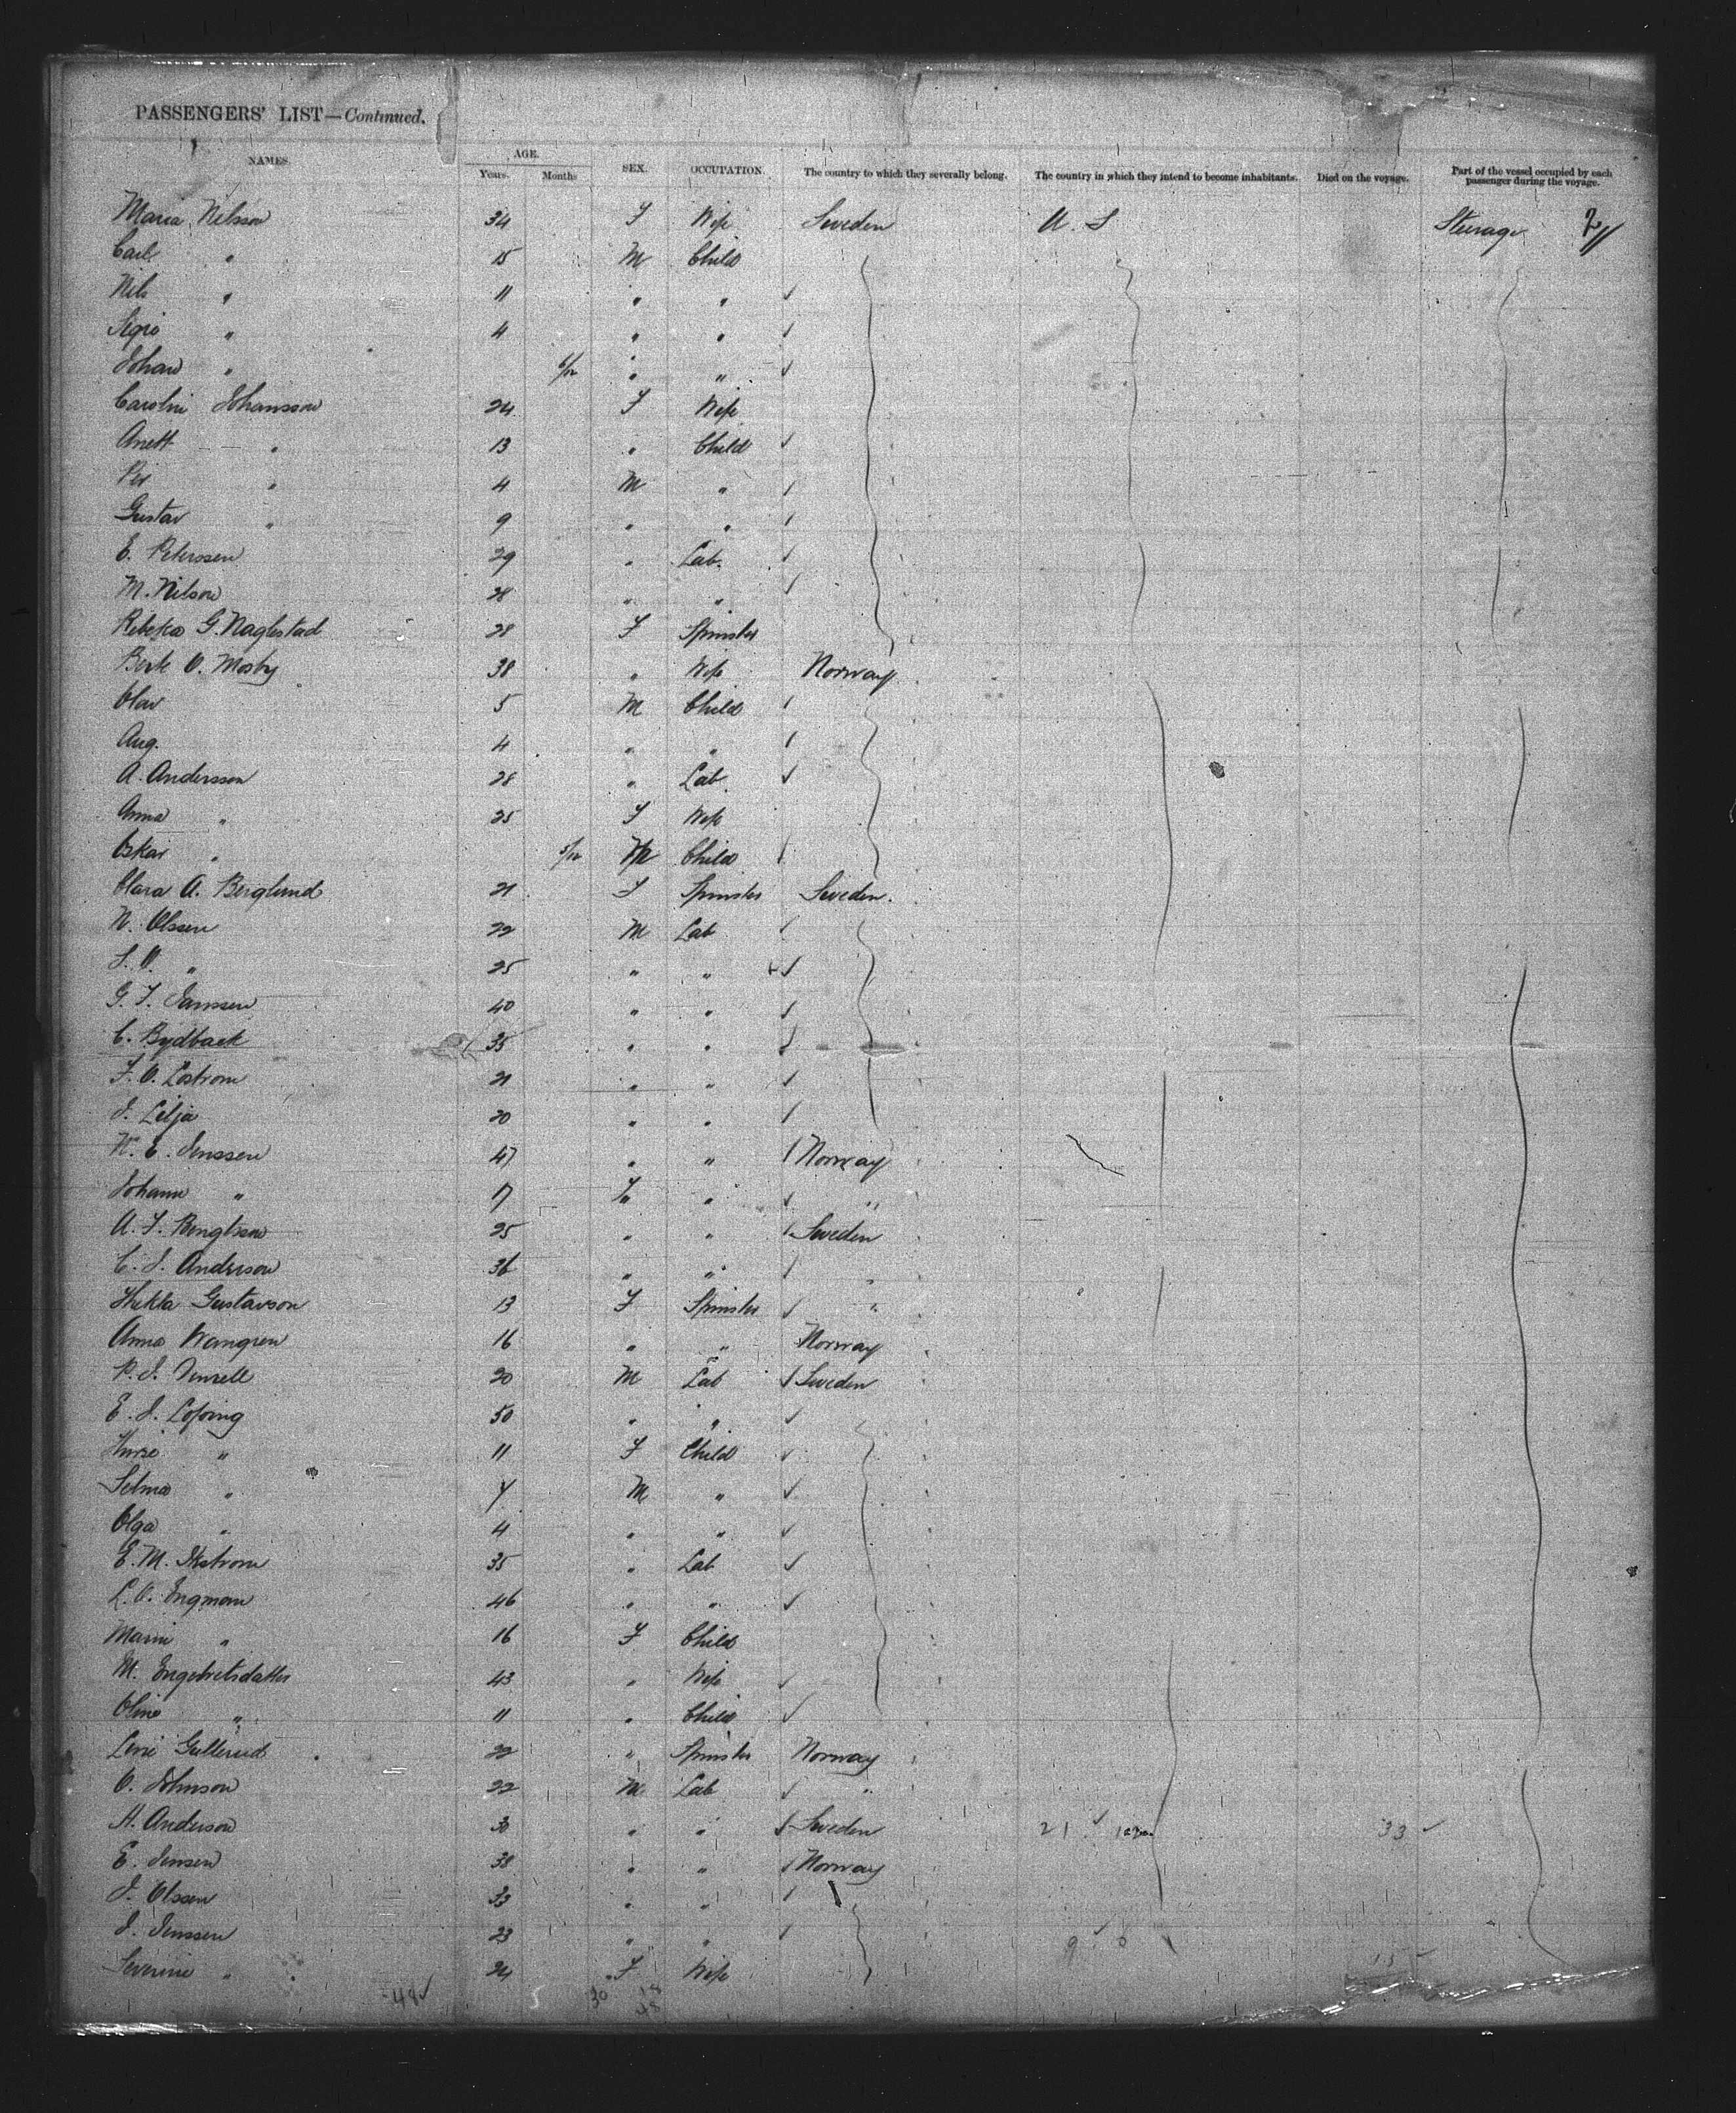 PASSENGERS' LIST—Continued.
NAMES. AGE. Years. Months SEX. OCCUPATION. The country to which they severally belong. The country in which they intend to become inhabitants. Died on the voyage. Part of the vessel occupied by each passenger during the voyage.
Maria Nilsson 34 F Wife Sweden U. S Steerage
Carl " 15 M Child
Nils " 11 " "
" 4 " "
Johan " 6/12 " "
Carolin Johansson 24 F Wife
Anett " 13 " Child
Per " 4 M "
Gustav " 9 " "
E. Peterssen 29 " Lab.
M. Nilson 28 " "
Rebeka G. Naglestad 28 F Spinster
Berte O. Mosby 38 " Wife Norway
Olav 5 M Child
Aug. 4 " "
A. Andersson 28 " Lab.
Anna " 25 F Wife
Oskar " 5/12 M Child
Clara A. Berglund 21 F Spinster Sweden.
N. Olssen 22 M Lab
S. O. " 25 " "
G. F. Janssen 40 " "
C. Bydback 35 " "
F. O. Lostrom 21 " "
J. Lilja 20 " "
N. E. Jenssen 47 " " Norway
Johann " 17 F " "
A. F. Bengtsson 25 " " Sweden
C. J. Anderson 36 " " "
Gustavson 13 F Spinster "
Anna Wangren 16 " " Norway
P. J. 20 M Lab Sweden
E. J. Lofving 50 " "
" 11 F Child
Selma " 7 M "
Olga " 4 " "
E. M. Ekstrom 35 " Lab
L. O. Engman 46 " "
Marin " 16 F Child
M. Engebretsdatter 43 " Wife
Oline " 11 " Child
Lene Gullerud 22 " Spinster Norway
O. Johnson 22 M Lab "
A. Anderson 30 " " Sweden 21 33
E. Jensen 38 " " Norway
J. Olssen 33 " "
J. Jenssen 23 " " 9 15
Severine " 24 F Wife
48 5 30 18
48